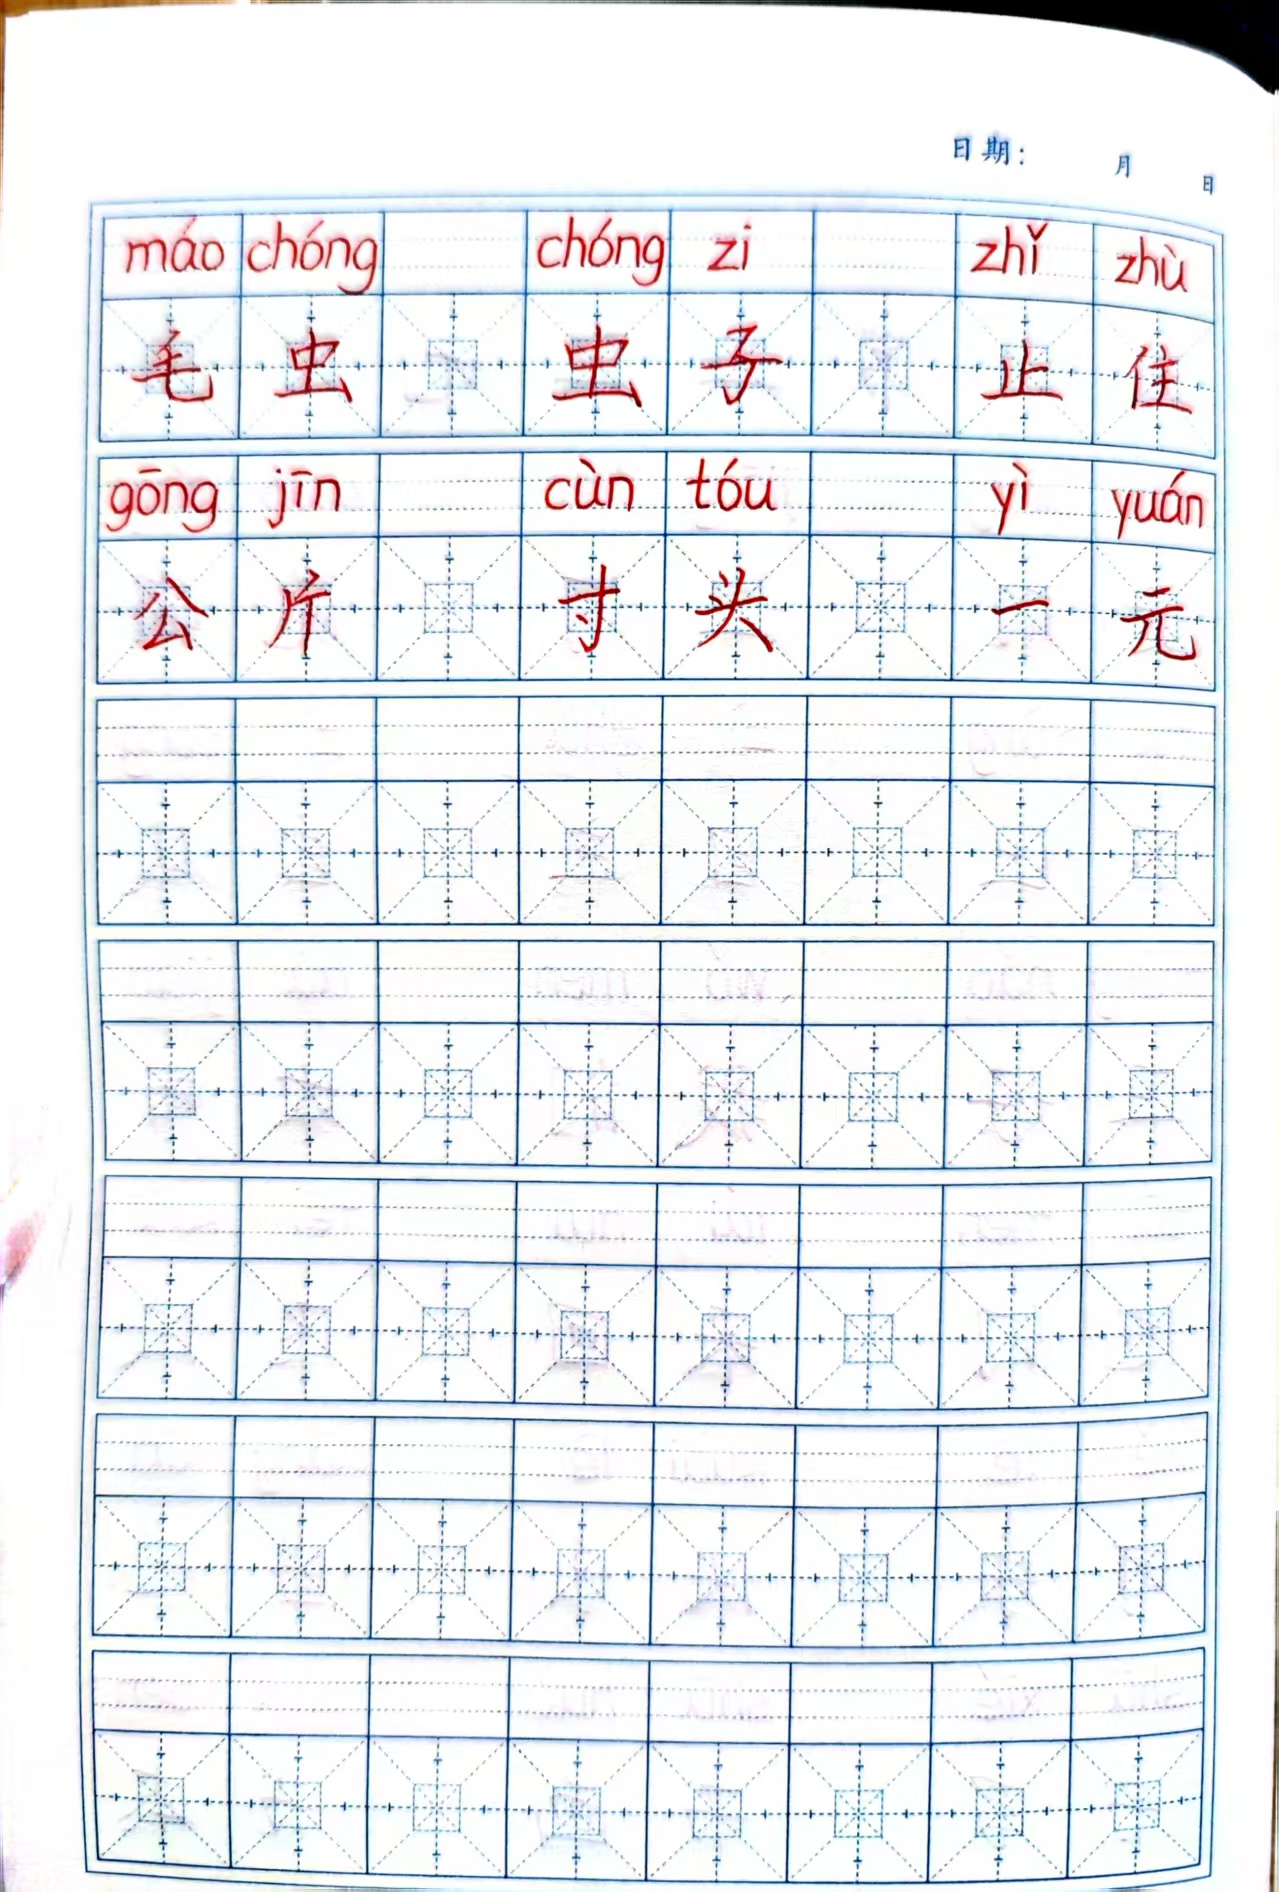 日期： 月 日
máo chóng chóng zi zhǐ zhù
毛虫 虫子 止住
gōng jīn cùn tóu yì yuán
公斤 寸头 一元